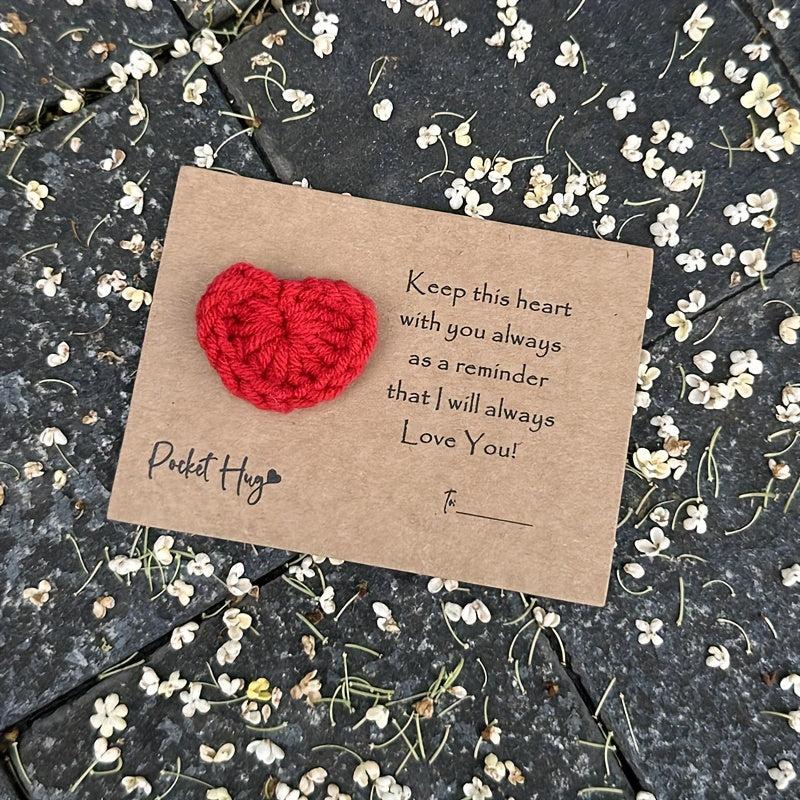 Keep this heart
with you always
as a reminder
that I will always
Love You!
Pocket Hug
To: